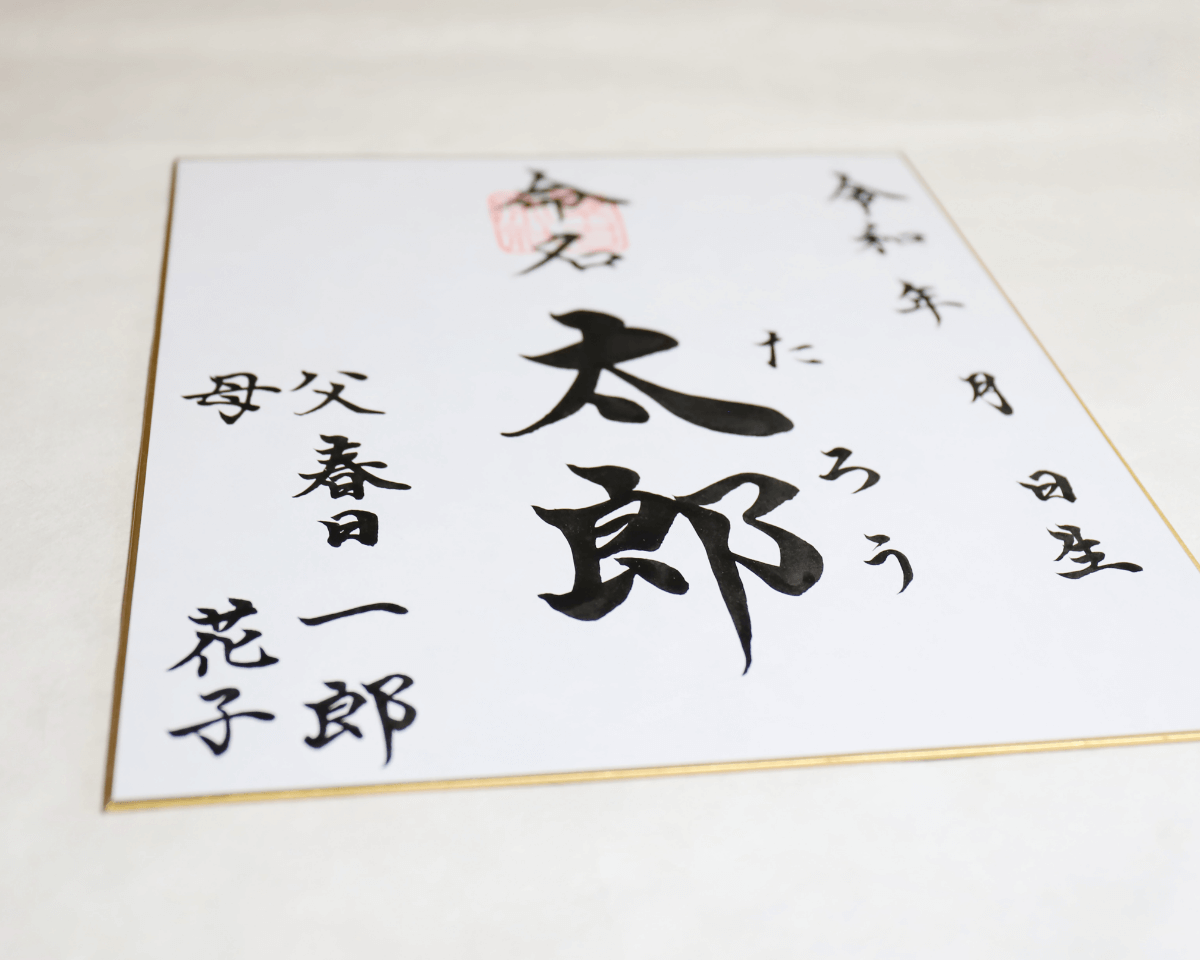 令和 年 月 日生
たろう
命名 太郎
父 春日 一郎
母 花子